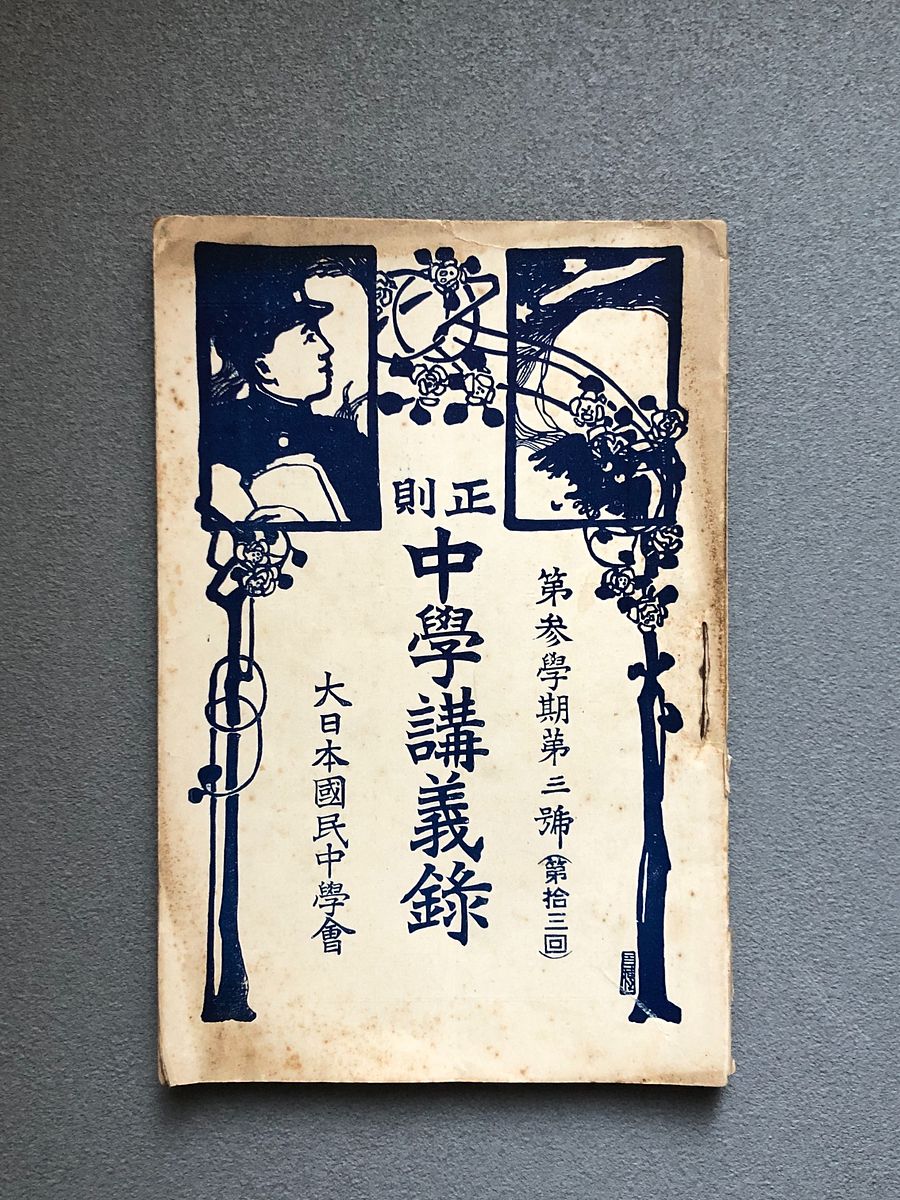 正則
中學講義錄
第参學期第三號（第拾三回）
大日本國民中學會